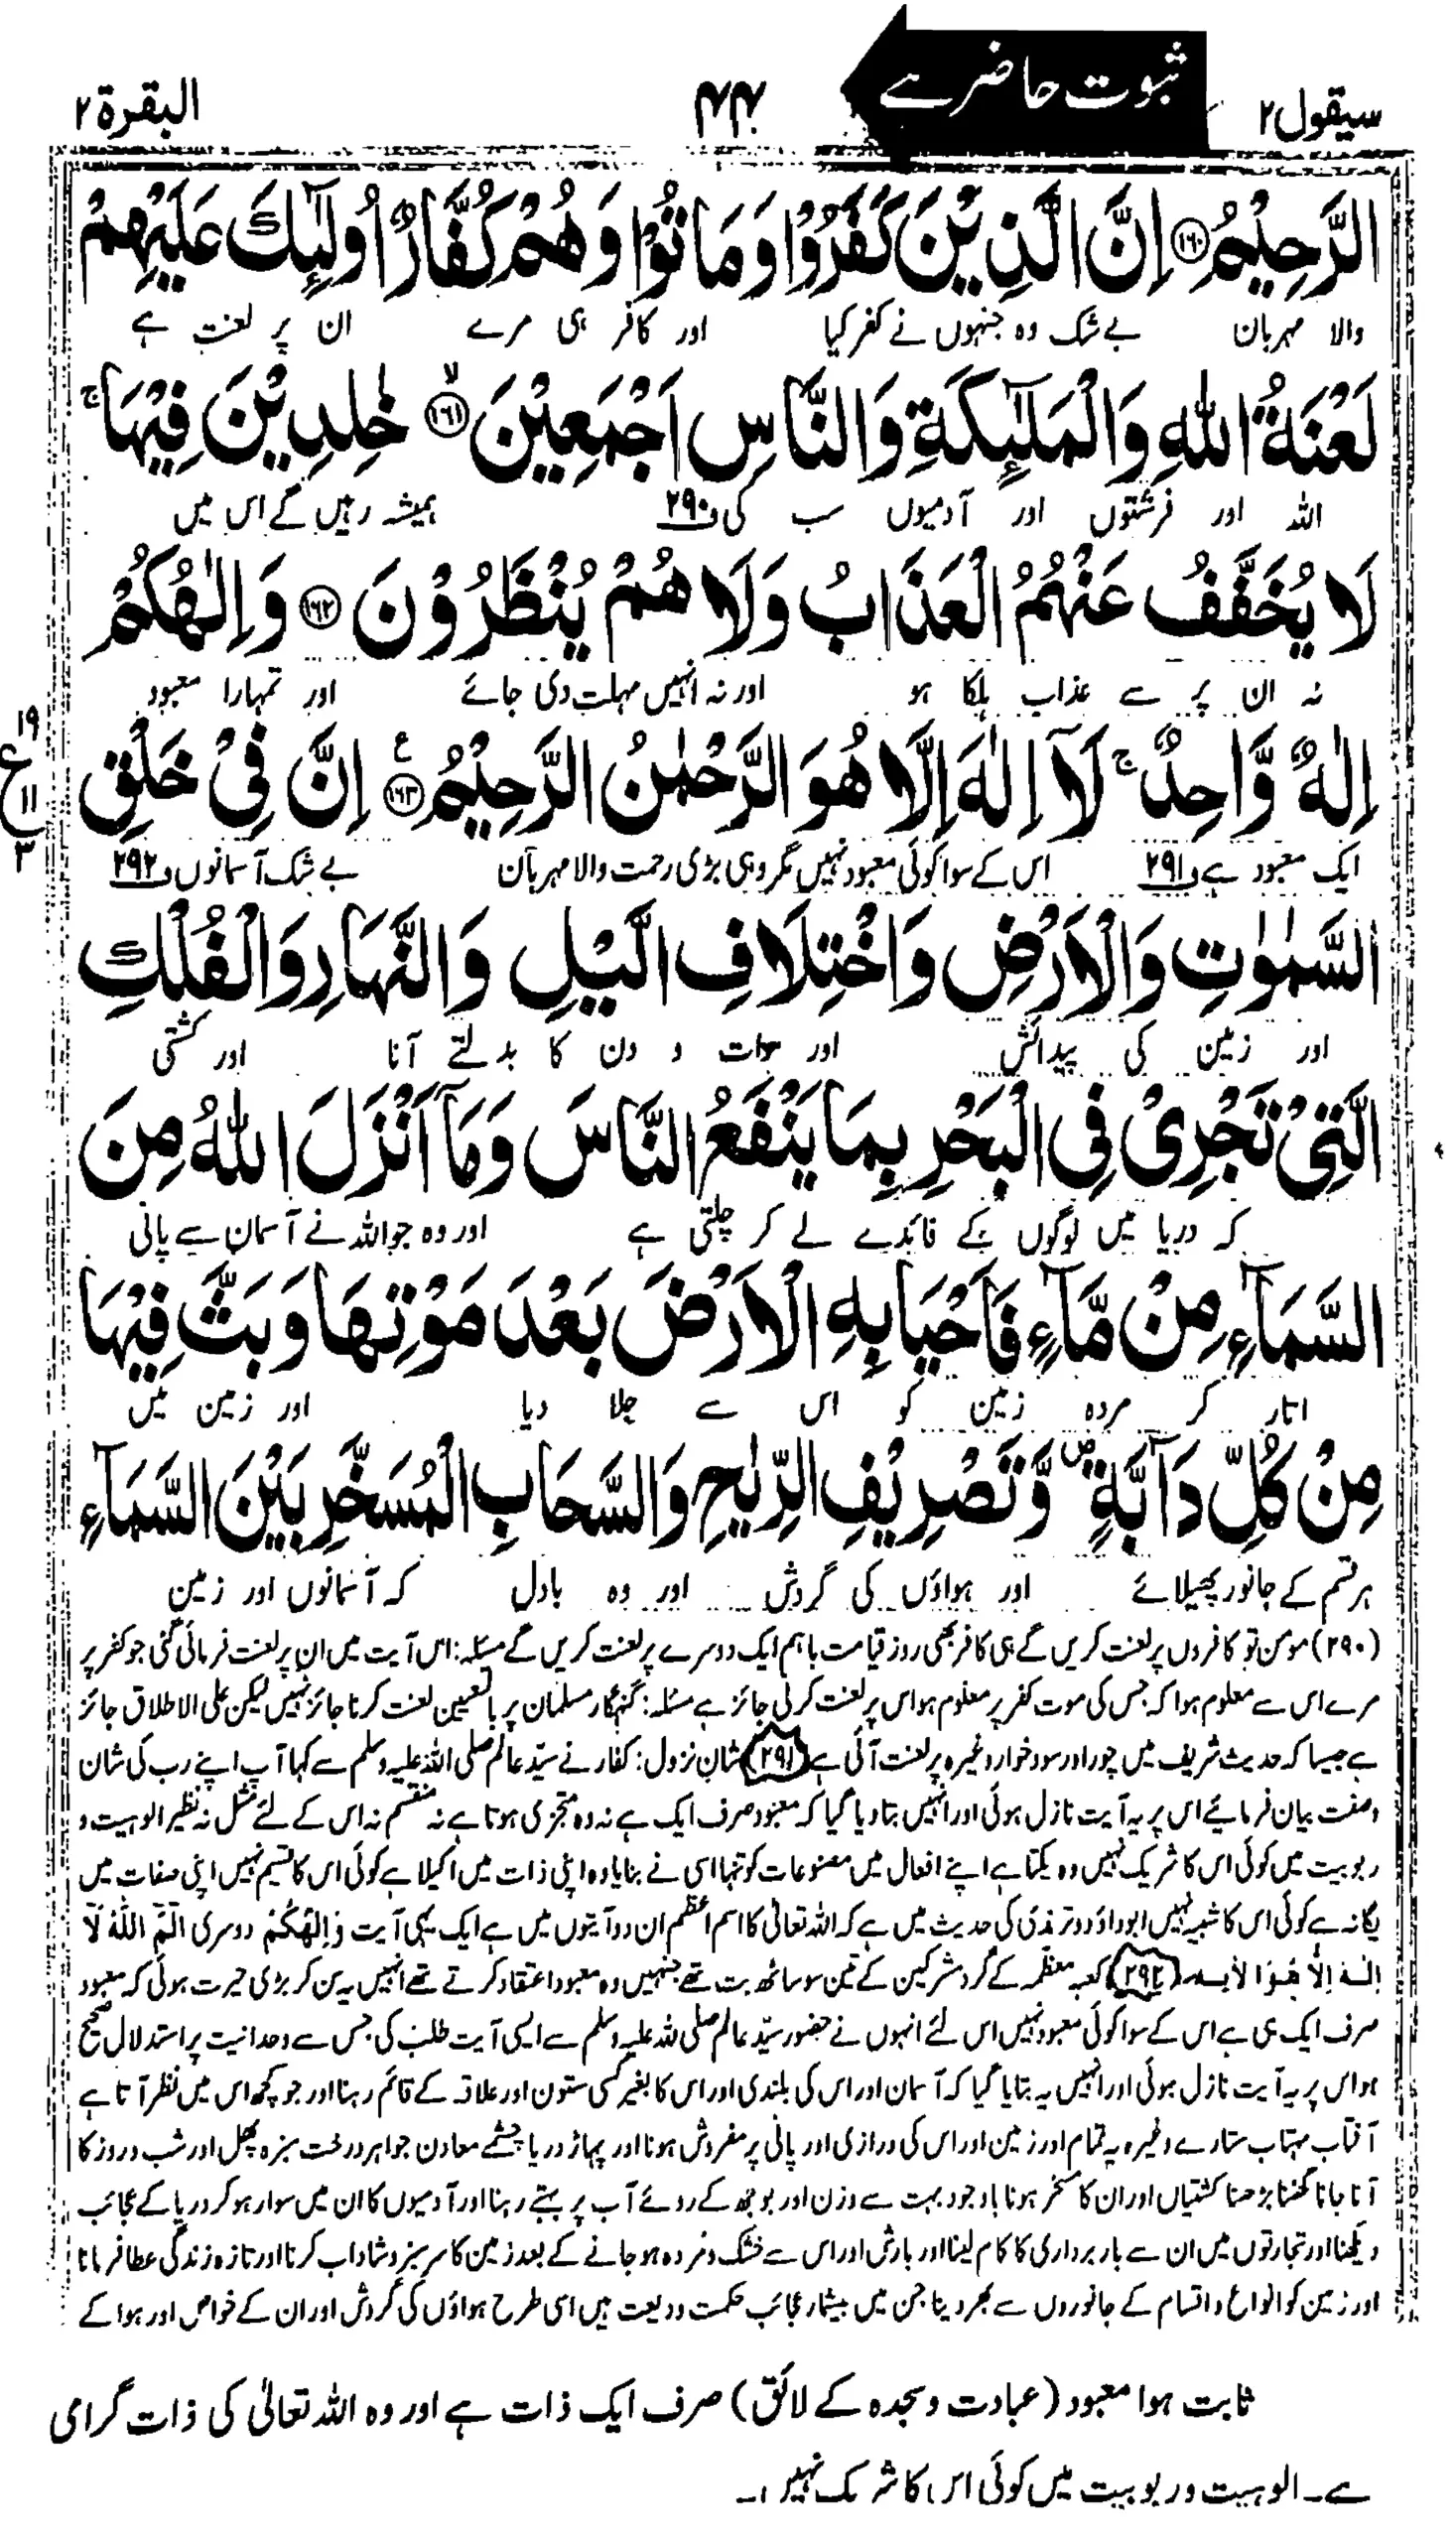 سیقول ۲
ثبوت حاضر ہے
۴۴
البقرة ۲
الرَّحِیْمُ ﴿۱۶۰﴾ اِنَّ الَّذِیْنَ كَفَرُوْا وَ مَاتُوْا وَ هُمْ كُفَّارٌ اُولٰٓىِٕكَ عَلَیْهِمْ
والا مہربان بے شک وہ جنہوں نے کفر کیا اور کافر ہی مرے ان پر لعنت ہے
لَعْنَةُ اللّٰهِ وَ الْمَلٰٓىِٕكَةِ وَ النَّاسِ اَجْمَعِیْنَ ﴿۱۶۱﴾ۙ خٰلِدِیْنَ فِیْهَا ۚ
اللہ اور فرشتوں اور آدمیوں سب کی ف۲۹۰ ہمیشہ رہیں گے اس میں
لَا یُخَفَّفُ عَنْهُمُ الْعَذَابُ وَ لَا هُمْ یُنْظَرُوْنَ ﴿۱۶۲﴾ وَ اِلٰهُكُمْ
نہ ان پر سے عذاب ہلکا ہو اور نہ انہیں مہلت دی جائے اور تمہارا معبود
۱۹
ع
۱۱
۳
اِلٰهٌ وَّاحِدٌ ۚ لَاۤ اِلٰهَ اِلَّا هُوَ الرَّحْمٰنُ الرَّحِیْمُ ﴿۱۶۳﴾ع اِنَّ فِیْ خَلْقِ
ایک معبود ہے ف۲۹۱ اس کے سوا کوئی معبود نہیں مگر وہی بڑی رحمت والا مہربان بے شک آسمانوں ف۲۹۲
السَّمٰوٰتِ وَ الْاَرْضِ وَ اخْتِلَافِ الَّیْلِ وَ النَّهَارِ وَ الْفُلْكِ
اور زمین کی پیدائش اور رات و دن کا بدلتے آنا اور کشتی
الَّتِیْ تَجْرِیْ فِی الْبَحْرِ بِمَا یَنْفَعُ النَّاسَ وَ مَاۤ اَنْزَلَ اللّٰهُ مِنَ
کہ دریا میں لوگوں کے فائدے لے کر چلتی ہے اور وہ جو اللہ نے آسمان سے پانی
السَّمَآءِ مِنْ مَّآءٍ فَاَحْیَا بِهِ الْاَرْضَ بَعْدَ مَوْتِهَا وَ بَثَّ فِیْهَا
اتار کر مردہ زمین کو اس سے جلا دیا اور زمین میں
مِنْ كُلِّ دَآبَّةٍ ۪ وَّ تَصْرِیْفِ الرِّیٰحِ وَ السَّحَابِ الْمُسَخَّرِ بَیْنَ السَّمَآءِ
ہر قسم کے جانور پھیلائے اور ہواؤں کی گردش اور وہ بادل کہ آسمانوں اور زمین
(۲۹۰) مومن تو کافروں پر لعنت کریں گے ہی کافر بھی روز قیامت باہم ایک دوسرے پر لعنت کریں گے مسئلہ: اس آیت میں ان پر لعنت فرمائی گئی جو کفر پر
مرے اس سے معلوم ہوا کہ جس کی موت کفر پر معلوم ہو اس پر لعنت کرنی جائز ہے مسئلہ: گنہگار مسلمان پر بالتعیین لعنت کرنا جائز نہیں لیکن علی الاطلاق جائز
ہے جیسا کہ حدیث شریف میں چور اور سود خوار وغیرہ پر لعنت آئی ہے (۲۹۱) شان نزول: کفار نے سیّد عالم صلی اللہ علیہ وسلم سے کہا آپ اپنے رب کی شان
و صفت بیان فرمائیے اس پر یہ آیت نازل ہوئی اور انہیں بتا دیا گیا کہ معبود صرف ایک ہے نہ وہ متجزی ہوتا ہے نہ منقسم نہ اس کے لئے مثل نہ نظیر الوہیت و
ربوبیت میں کوئی اس کا شریک نہیں وہ یکتا ہے اپنے افعال میں مصنوعات کو تنہا اسی نے بنایا وہ اپنی ذات میں اکیلا ہے کوئی اس کا قسیم نہیں اپنی صفات میں
یگانہ ہے کوئی اس کا شبیہ نہیں ابو داؤد و ترمذی کی حدیث میں ہے کہ اللہ تعالیٰ کا اسم اعظم ان دو آیتوں میں ہے ایک یہی آیت وَاِلٰهُكُمْ دوسری الٓمّٓ اللّٰهُ لَآ
اِلٰهَ اِلَّا هُوَ الآیہ۔ (۲۹۲) کعبہ معظمہ کے گرد مشرکین کے تین سو ساٹھ بت تھے جنہیں وہ معبود اعتقاد کرتے تھے انہیں یہ سن کر بڑی حیرت ہوئی کہ معبود
صرف ایک ہی ہے اس کے سوا کوئی معبود نہیں اس لئے انہوں نے حضور سیّد عالم صلی اللہ علیہ وسلم سے ایسی آیت طلب کی جس سے وحدانیت پر استدلال صحیح
ہو اس پر یہ آیت نازل ہوئی اور انہیں یہ بتایا گیا کہ آسمان اور اس کی بلندی اور اس کا بغیر کسی ستون اور علاقہ کے قائم رہنا اور جو کچھ اس میں نظر آتا ہے
آفتاب مہتاب ستارے وغیرہ یہ تمام اور زمین اور اس کی درازی اور پانی پر مفروش ہونا اور پہاڑ دریا چشمے معادن جواہر درخت سبزہ پھل اور شب و روز کا
آنا جانا گھٹنا بڑھنا کشتیاں اور ان کا مسخر ہونا باوجود بہت سے وزن اور بوجھ کے روئے آب پر بہتے رہنا اور آدمیوں کا ان میں سوار ہو کر دریا کے عجائب
دیکھنا اور تجارتوں میں ان سے بار برداری کا کام لینا اور بارش اور اس سے خشک و مردہ ہو جانے کے بعد زمین کا سرسبز و شاداب کرنا اور تازہ زندگی عطا فرمانا
اور زمین کو انواع و اقسام کے جانوروں سے بھر دینا جن میں بیشمار عجائب حکمت ودیعت ہیں اسی طرح ہواؤں کی گردش اور ان کے خواص اور ہوا کے
ثابت ہوا معبود (عبادت و سجدہ کے لائق) صرف ایک ذات ہے اور وہ اللہ تعالیٰ کی ذات گرامی
ہے۔ الوہیت و ربوبیت میں کوئی اس کا شریک نہیں۔